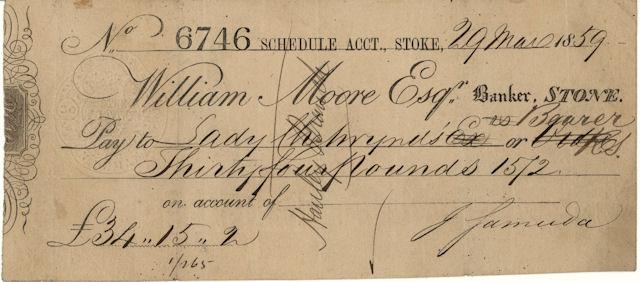 No 6746 SCHEDULE ACCT., STOKE, 29 Mar 1859
William Moore Esqr. Banker, STONE.
Pay to Lady or Bearer
Thirty four Pounds 15/2
on account of
£34 " 15 " 2